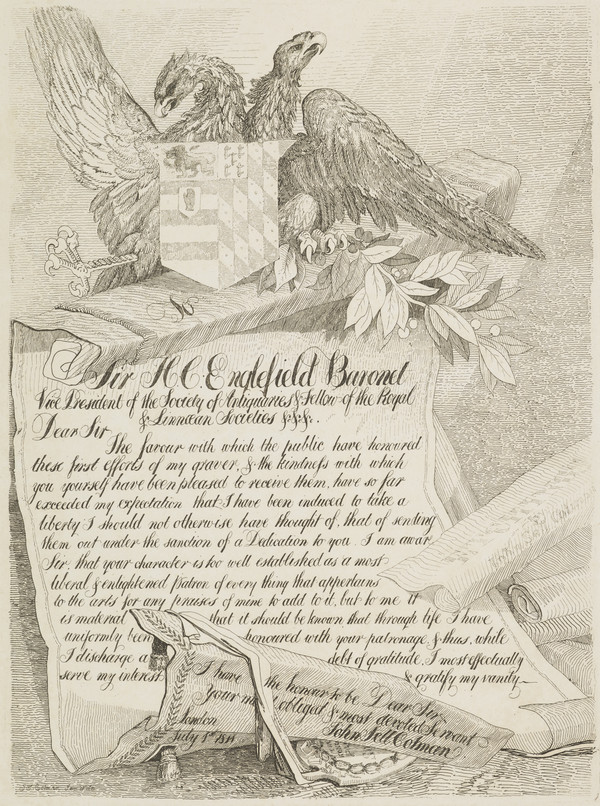 To
Sir H. C. Englefield Baronet
Vice President of the Society of Antiquaries & Fellow of the Royal
& Linnæan Societies &.&.&.
Dear Sir
The favour with which the public have honoured
these first efforts of my graver, & the kindness with which
you yourself have been pleased to receive them, have so far
exceeded my expectation that I have been induced to take a
liberty I should not otherwise have thought of, that of sending
them out under the sanction of a Dedication to you. I am aware
Sir, that your character is too well established as a most
liberal & enlightened Patron of every thing that appertains
to the arts for any praises of mine to add to it, but to me it
is material that it should be known that through life I have
uniformly been honoured with your patronage & thus, while
I discharge a debt of gratitude, I most effectually
serve my interest & gratify my vanity—
I have the honour to be Dear Sir
Your most obliged & most devoted Servant
John Sell Cotman
London
July 1st 1811